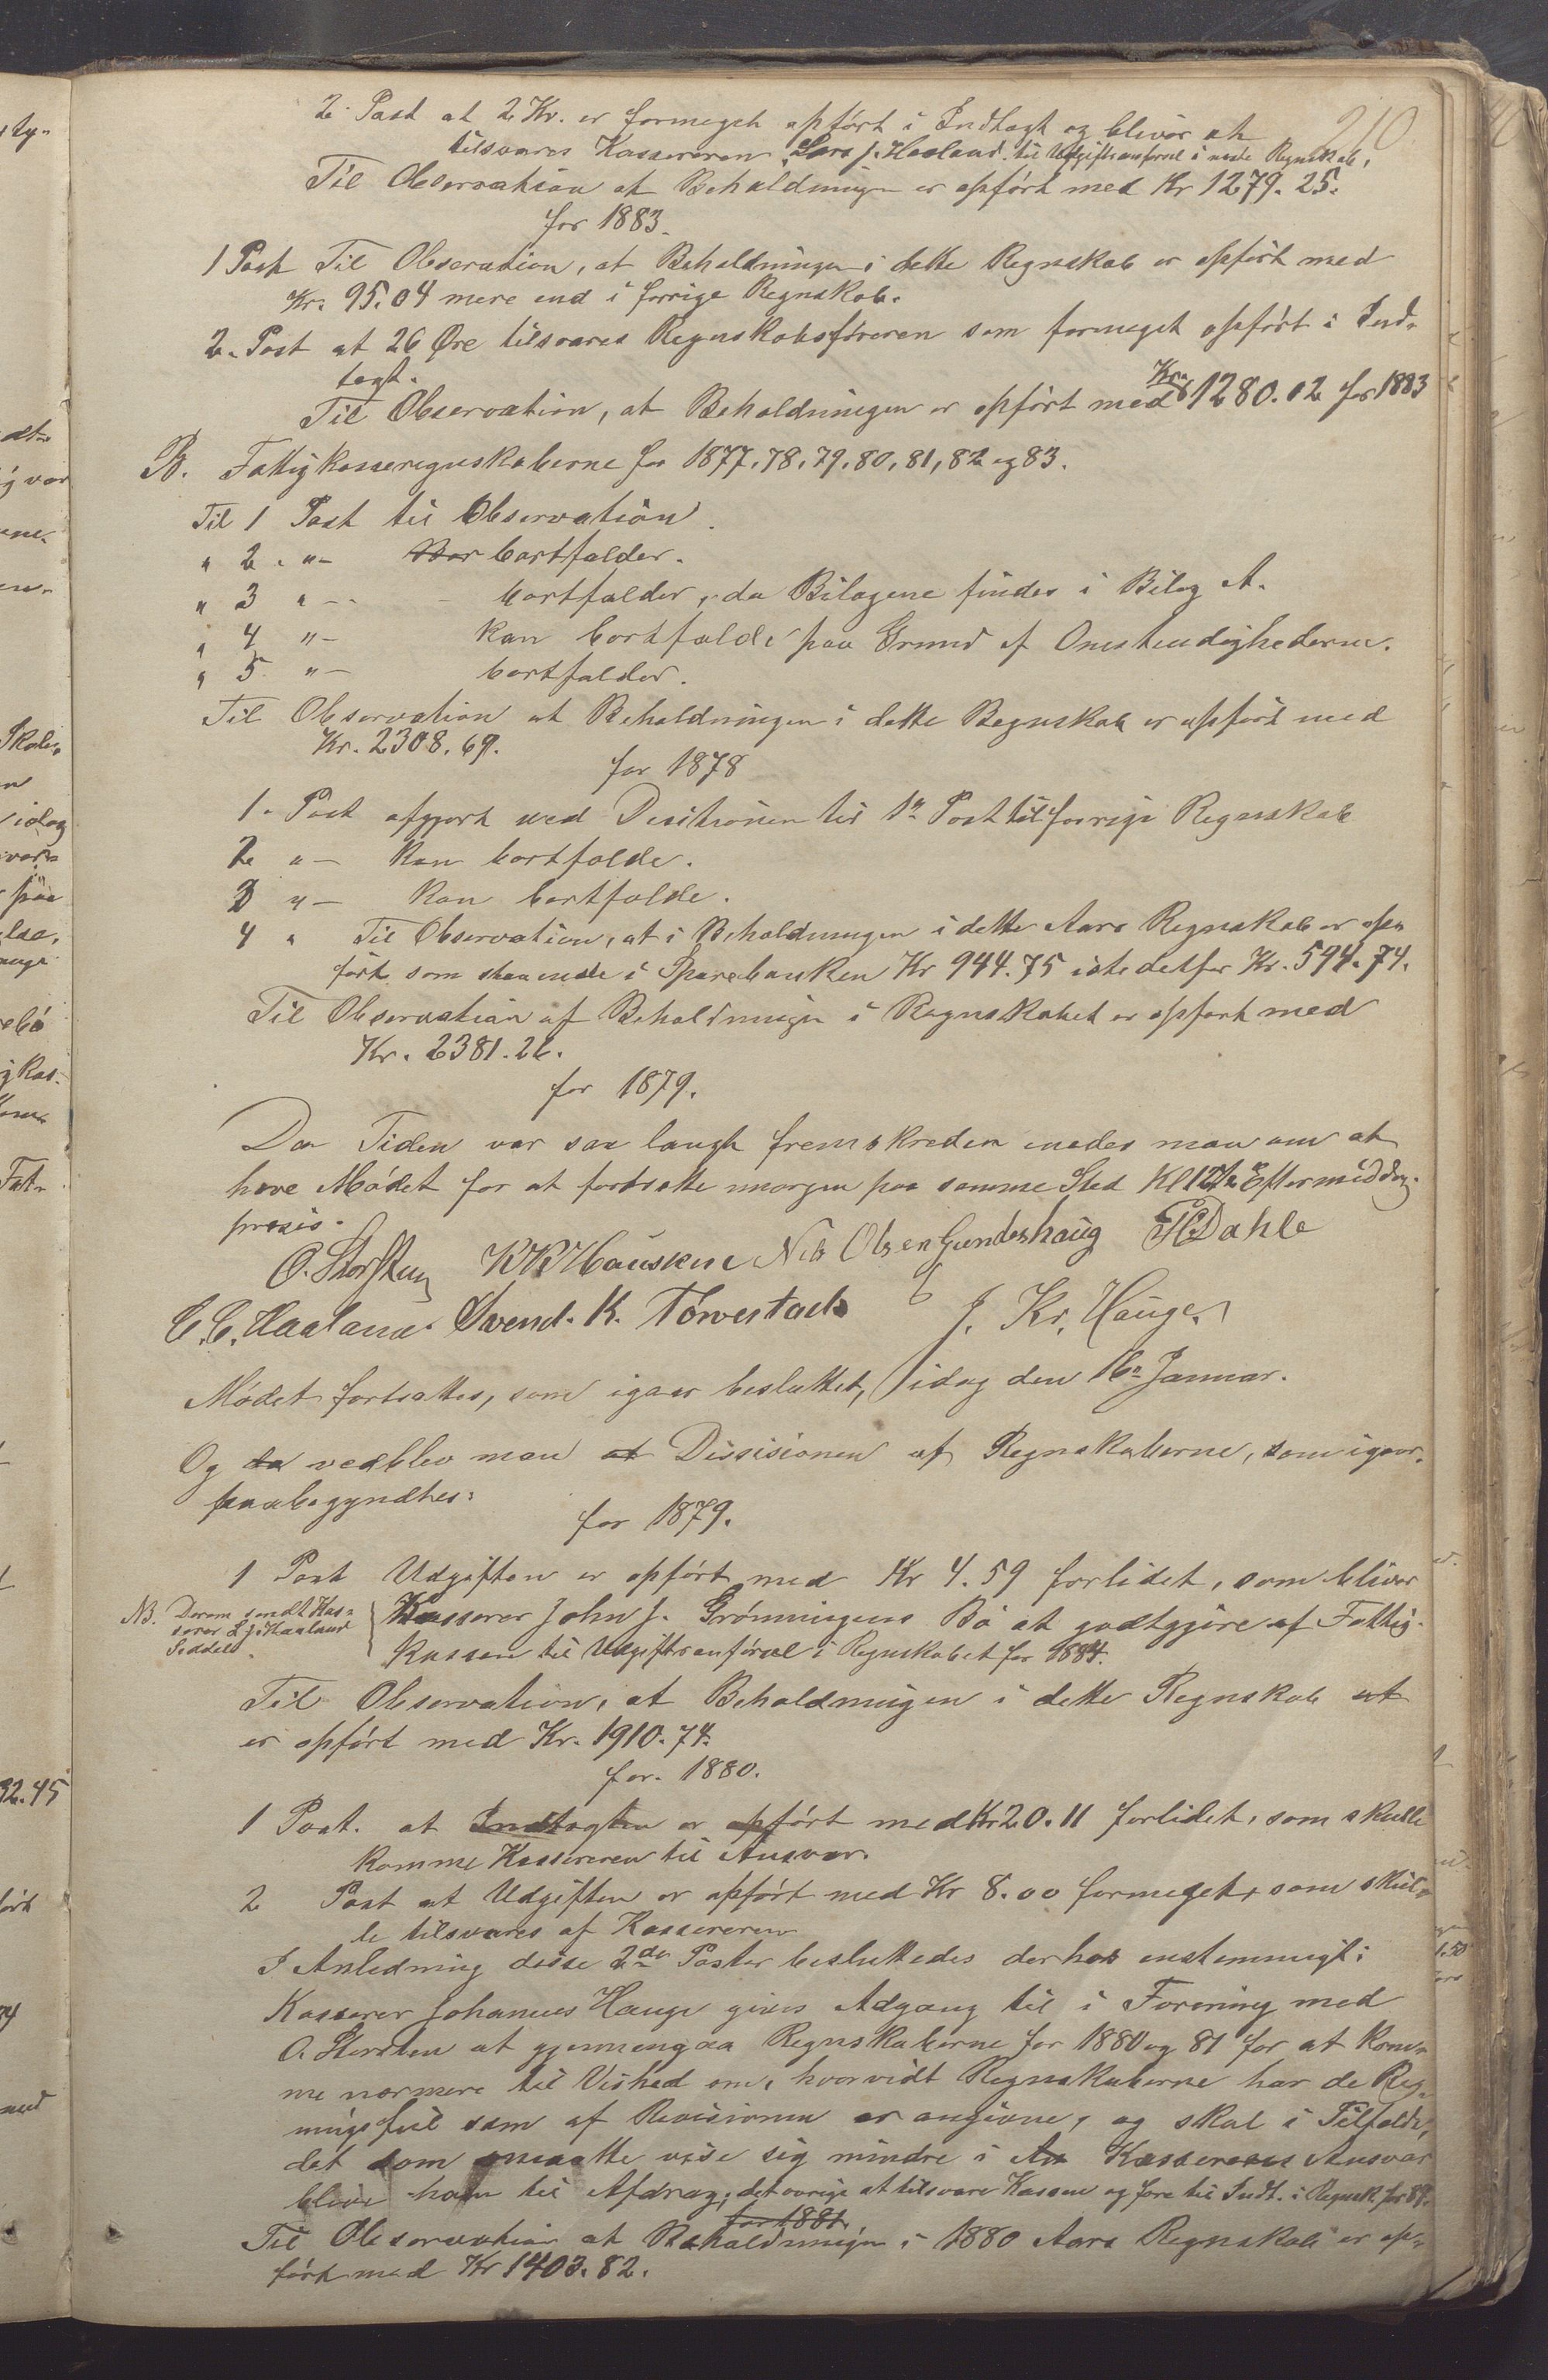 210
2. Post at 2 Kr. er formeget opført i Indtægt og bliver at
tilsvares Kassereren Lars J. Haaland til Udgiftsanførsel i næste Regnskab.
Til Observation at Beholdningen er opført med Kr 1279. 25.
for 1883.
1 Post Til Observation, at Beholdningen i dette Regnskab er opført med
Kr. 95.04 mere end i forrige Regnskab.
2. Post at 26 Øre tilsvares Regnskabsføreren som formeget opført i Ind-
tægt.
Til Observation, at Beholdningen er opført med Kr. 1280.02 for 1883
B. Fattigkasseregnskaberne for 1877, 78, 79, 80, 81, 82 og 83.
Til 1 Post til Observation.
" 2 " - Bor bortfalder.
" 3 " - bortfalder, da Bilagene findes i Bilag A.
" 4 " - kan bortfalde paa Grund af Omstendighederne.
" 5 " - bortfalder.
Til Observation at Beholdningen i dette Regnskab er opført med
Kr. 2308. 69.
for 1878
1. Post afgjort ved Desitionen til 1n Post til forrige Regnskab
2 " - kan bortfalde.
3 " - kan bortfalde.
4 " Til Observation, at i Beholdningen i dette Aars Regnskab er op-
ført som staaende i Sparebanken Kr 944.75 istedetfor Kr. 594.74.
Til Observation af Beholdningen i Regnskabet er opført med
Kr. 2381.26.
for 1879.
Da Tiden var saa langt fremskreden enedes man om at
hæve Mødet for at fortsætte morgen paa samme Sted Kl 12 Eftermiddag
præsis.
O. Storsten K K Hausken Nils Olsen Gundeshaug Dahle
C. C. Haaland Svend. K. Tørvestad J. Kr. Hauge.
Mødet fortsattes, som igaar besluttet, idag den 16n Januar.
Og da vedblev man at Dissisionen af Regnskaberne, som igaar
paabegyndtes:
for 1879.
1 Post Udgiften er opført med Kr 4.59 forlidet, som bliver
NB. Derom sendt Kas-
serer L J Haaland
Seddel.
Kasserer John J. Grønningens Bo at godtgjøre af Fattig-
kassen til Udgiftsanførsel i Regnskabet for 1884.
Til Observation, at Beholdningen i dette Regnskab at
er opført med Kr. 1910.74.
for 1880.
1 Post. at Indtægten er opført med Kr 20.11 forlidet, som skulle
komme Kassereren til Ansvar.
2 Post at Udgiften er opført med Kr 8.00 formeget, som skul-
le tilsvares af Kassereren
I Anledning disse 2de Poster besluttedes derhos enstemmigt:
Kasserer Johannes Hauge gives Adgang til i Forening med
O. Storsten at gjennemgaa Regnskaberne for 1880 og 81 for at kom-
me nærmere til Vished om, hvorvidt Regnskaberne har de Reg-
ningsfeil som af Revisionen er angivne, og skal i Tilfælde,
det som maatte vise sig mindre i An Kassererens Ansvar
blive ham til Afdrag, det øvrige at tilsvare Kassen og føre til Indt. i Regnsk. for 84.
for 1881.
Til Observation at Beholdningen i 1880 Aars Regnskab er op-
ført med Kr 1403.82.